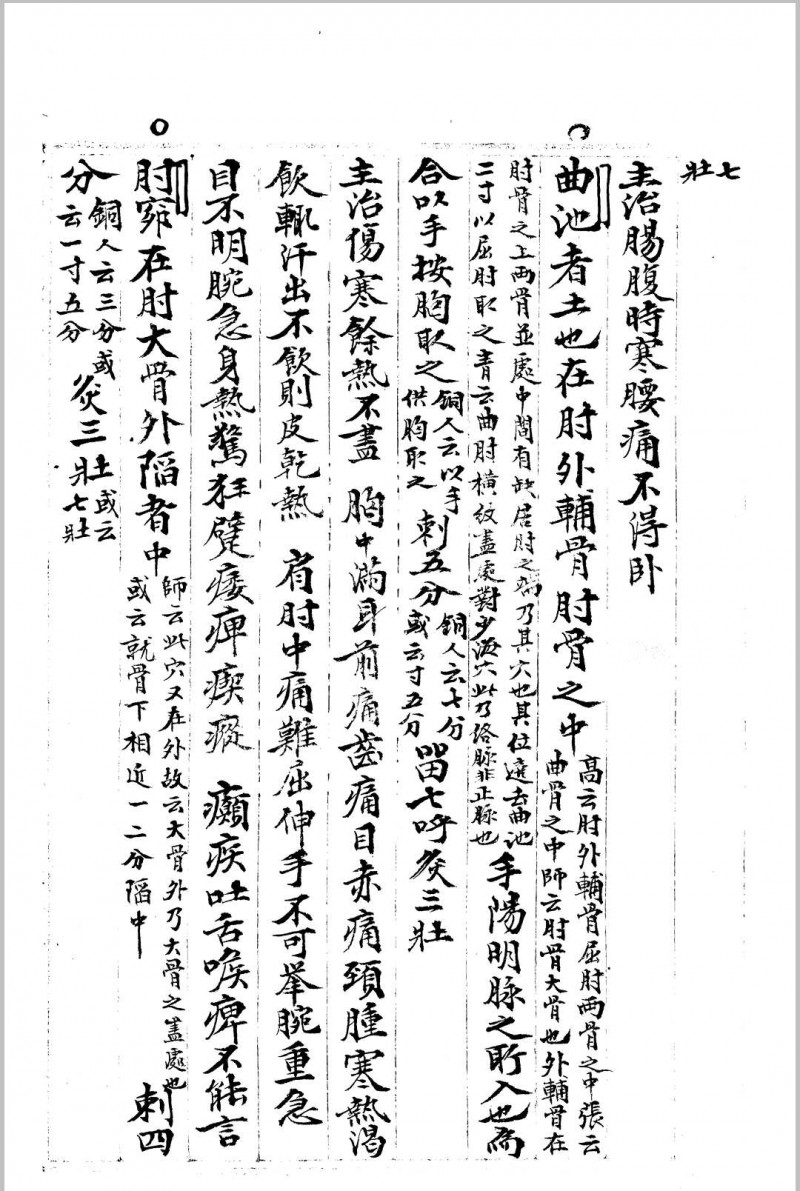 七壯
主治腸腹時寒腰痛不得卧
曲池者土也在肘外輔骨肘骨之中高云肘外輔骨屈肘兩骨之中張云曲骨之中師云肘骨大骨也外輔骨在
肘骨之上兩骨並處中間有缺居肘之端乃其穴也其位遠去曲池二寸以屈肘取之青云曲肘橫紋盡處對少海穴此乃絡脉非正脉也手陽明脉之所入也為
合以手按胸取之銅人云以手供胸取之刺五分銅人云七分或云寸五分留七呼灸三壯
主治傷寒餘熱不盡 胸中滿耳前痛齒痛目赤痛頸腫寒熱渴
飲輒汗出不飲則皮乾熱 肩肘中痛難屈伸手不可舉腕重急
目不明腕急身熱驚狂躄痿痺瘈瘲 癲疾吐舌喉痺不能言
肘窌在肘大骨外陷者中師云此穴又在外故云大骨外乃大骨之盖處也或云就骨下相近一二分陷中 刺四
分銅人云三分或云一寸五分灸三壯或云七壯